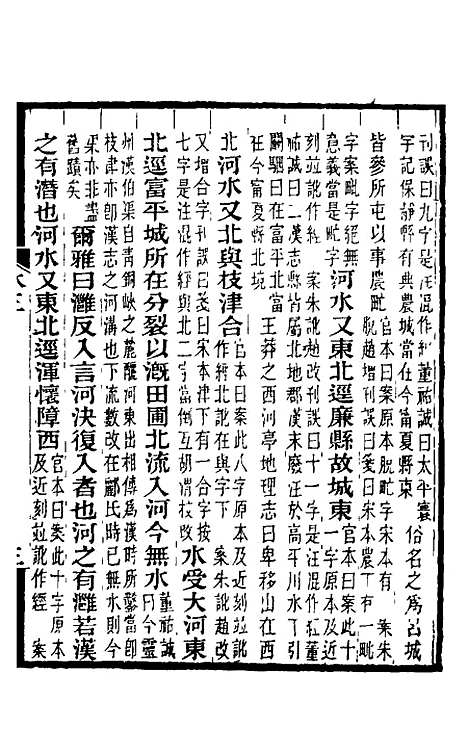 刊誤曰九字是注混作經董祐誠曰太平寰
宇記保靜縣有典農城當在今甯夏縣東
俗名之爲呂城
皆參所屯以事農甿
官本曰案原本脫甿字宋本有 案朱
脫趙增刊誤曰箋曰宋本農下有一甿
字案甿字絕無
意義當是甿字
河水又東北逕廉縣故城東
官本曰案此十
一字原本及近
刻並訛作經 案朱訛趙改刊誤曰十一字是注混作經董
祐誠曰二漢志縣皆屬北地郡漢末廢注於高平川水下引
闞駰曰在富平北富
在今甯夏縣北境
王莽之西河亭地理志曰卑移山在西
北河水又北與枝津合
官本曰案此八字原本及近刻並訛
作經北訛在與字下 案朱訛趙改
又增合字刊誤曰箋曰宋本津下有一合字按
七字是注混作經與北二字當倒互胡渭校改
水受大河東
北逕富平城所在分裂以溉田圃北流入河今無水
董祐誠
曰今靈
州漢伯渠自青銅峽之麓河東出相傳爲漢時所鑿當卽
枝津亦卽漢志之河溝也下流數改在酈氏時已無水則今
渠亦非盡
舊蹟矣
爾雅曰灉反入言河決復入者也河之有灉若漢
之有潛也河水又東北逕渾懷障西
官本曰案此十字原本
及近刻並訛作經 案
水三
三